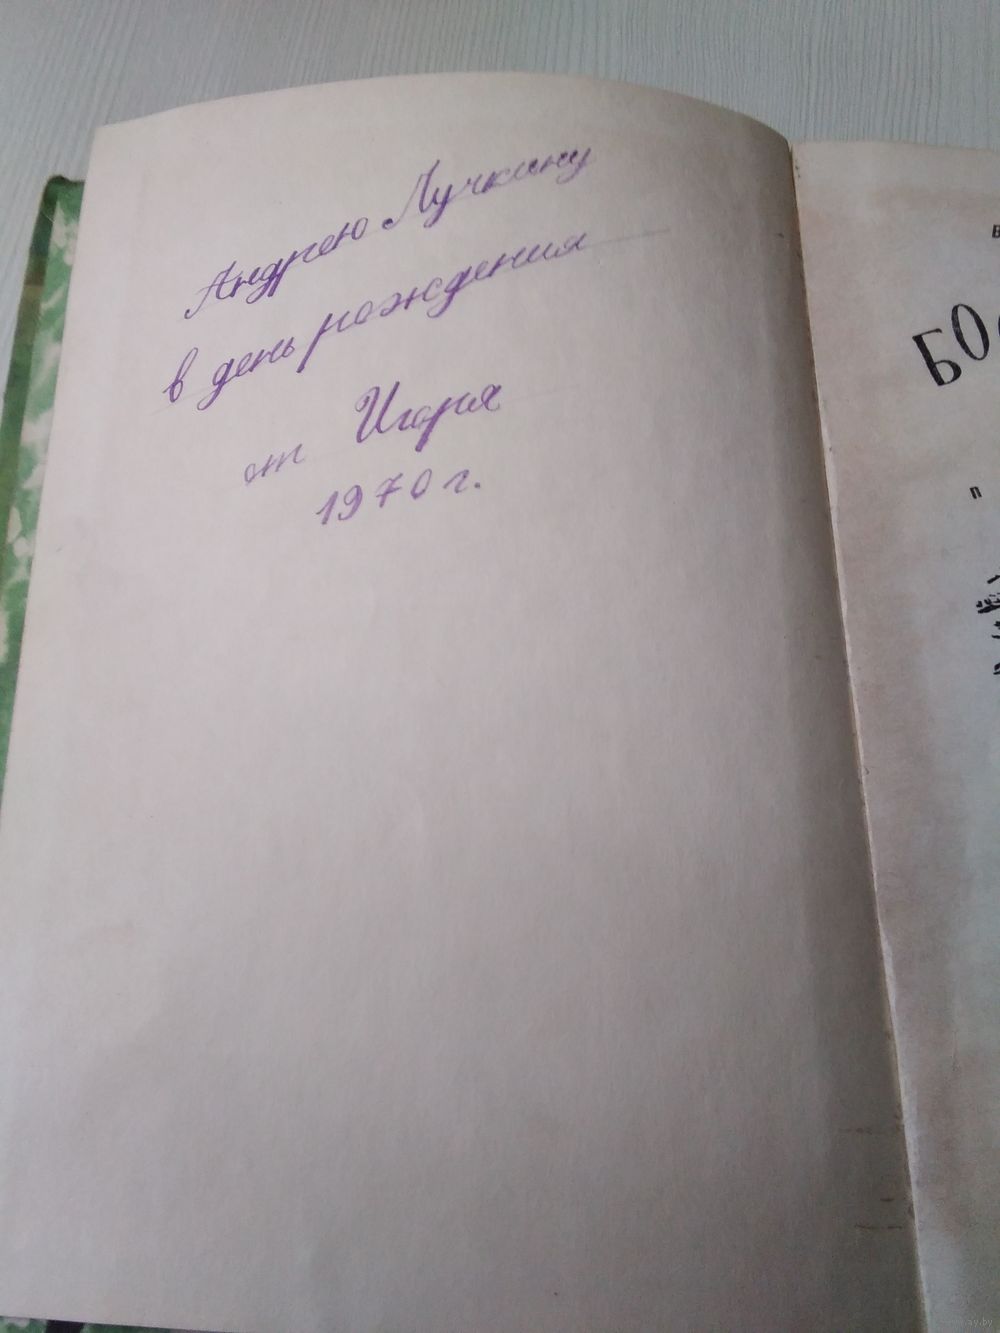 Андрею Лучкину
в день рождения
от Игоря
1970 г.
Б
БОС
П
ay.by